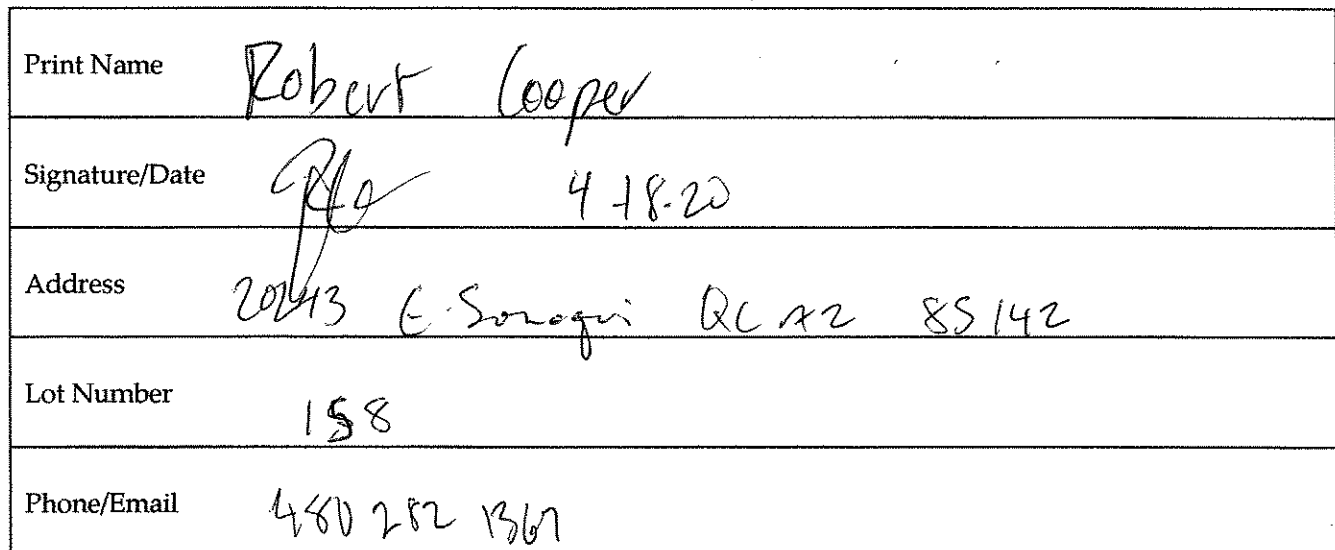 Print Name Robert Cooper
Signature/Date 4-18-20
Address 20243 E. Sonoqui QC AZ 85142
Lot Number 158
Phone/Email 480 282 1367